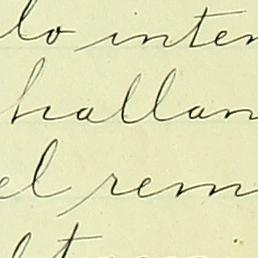 lo inten
hallan
el rem